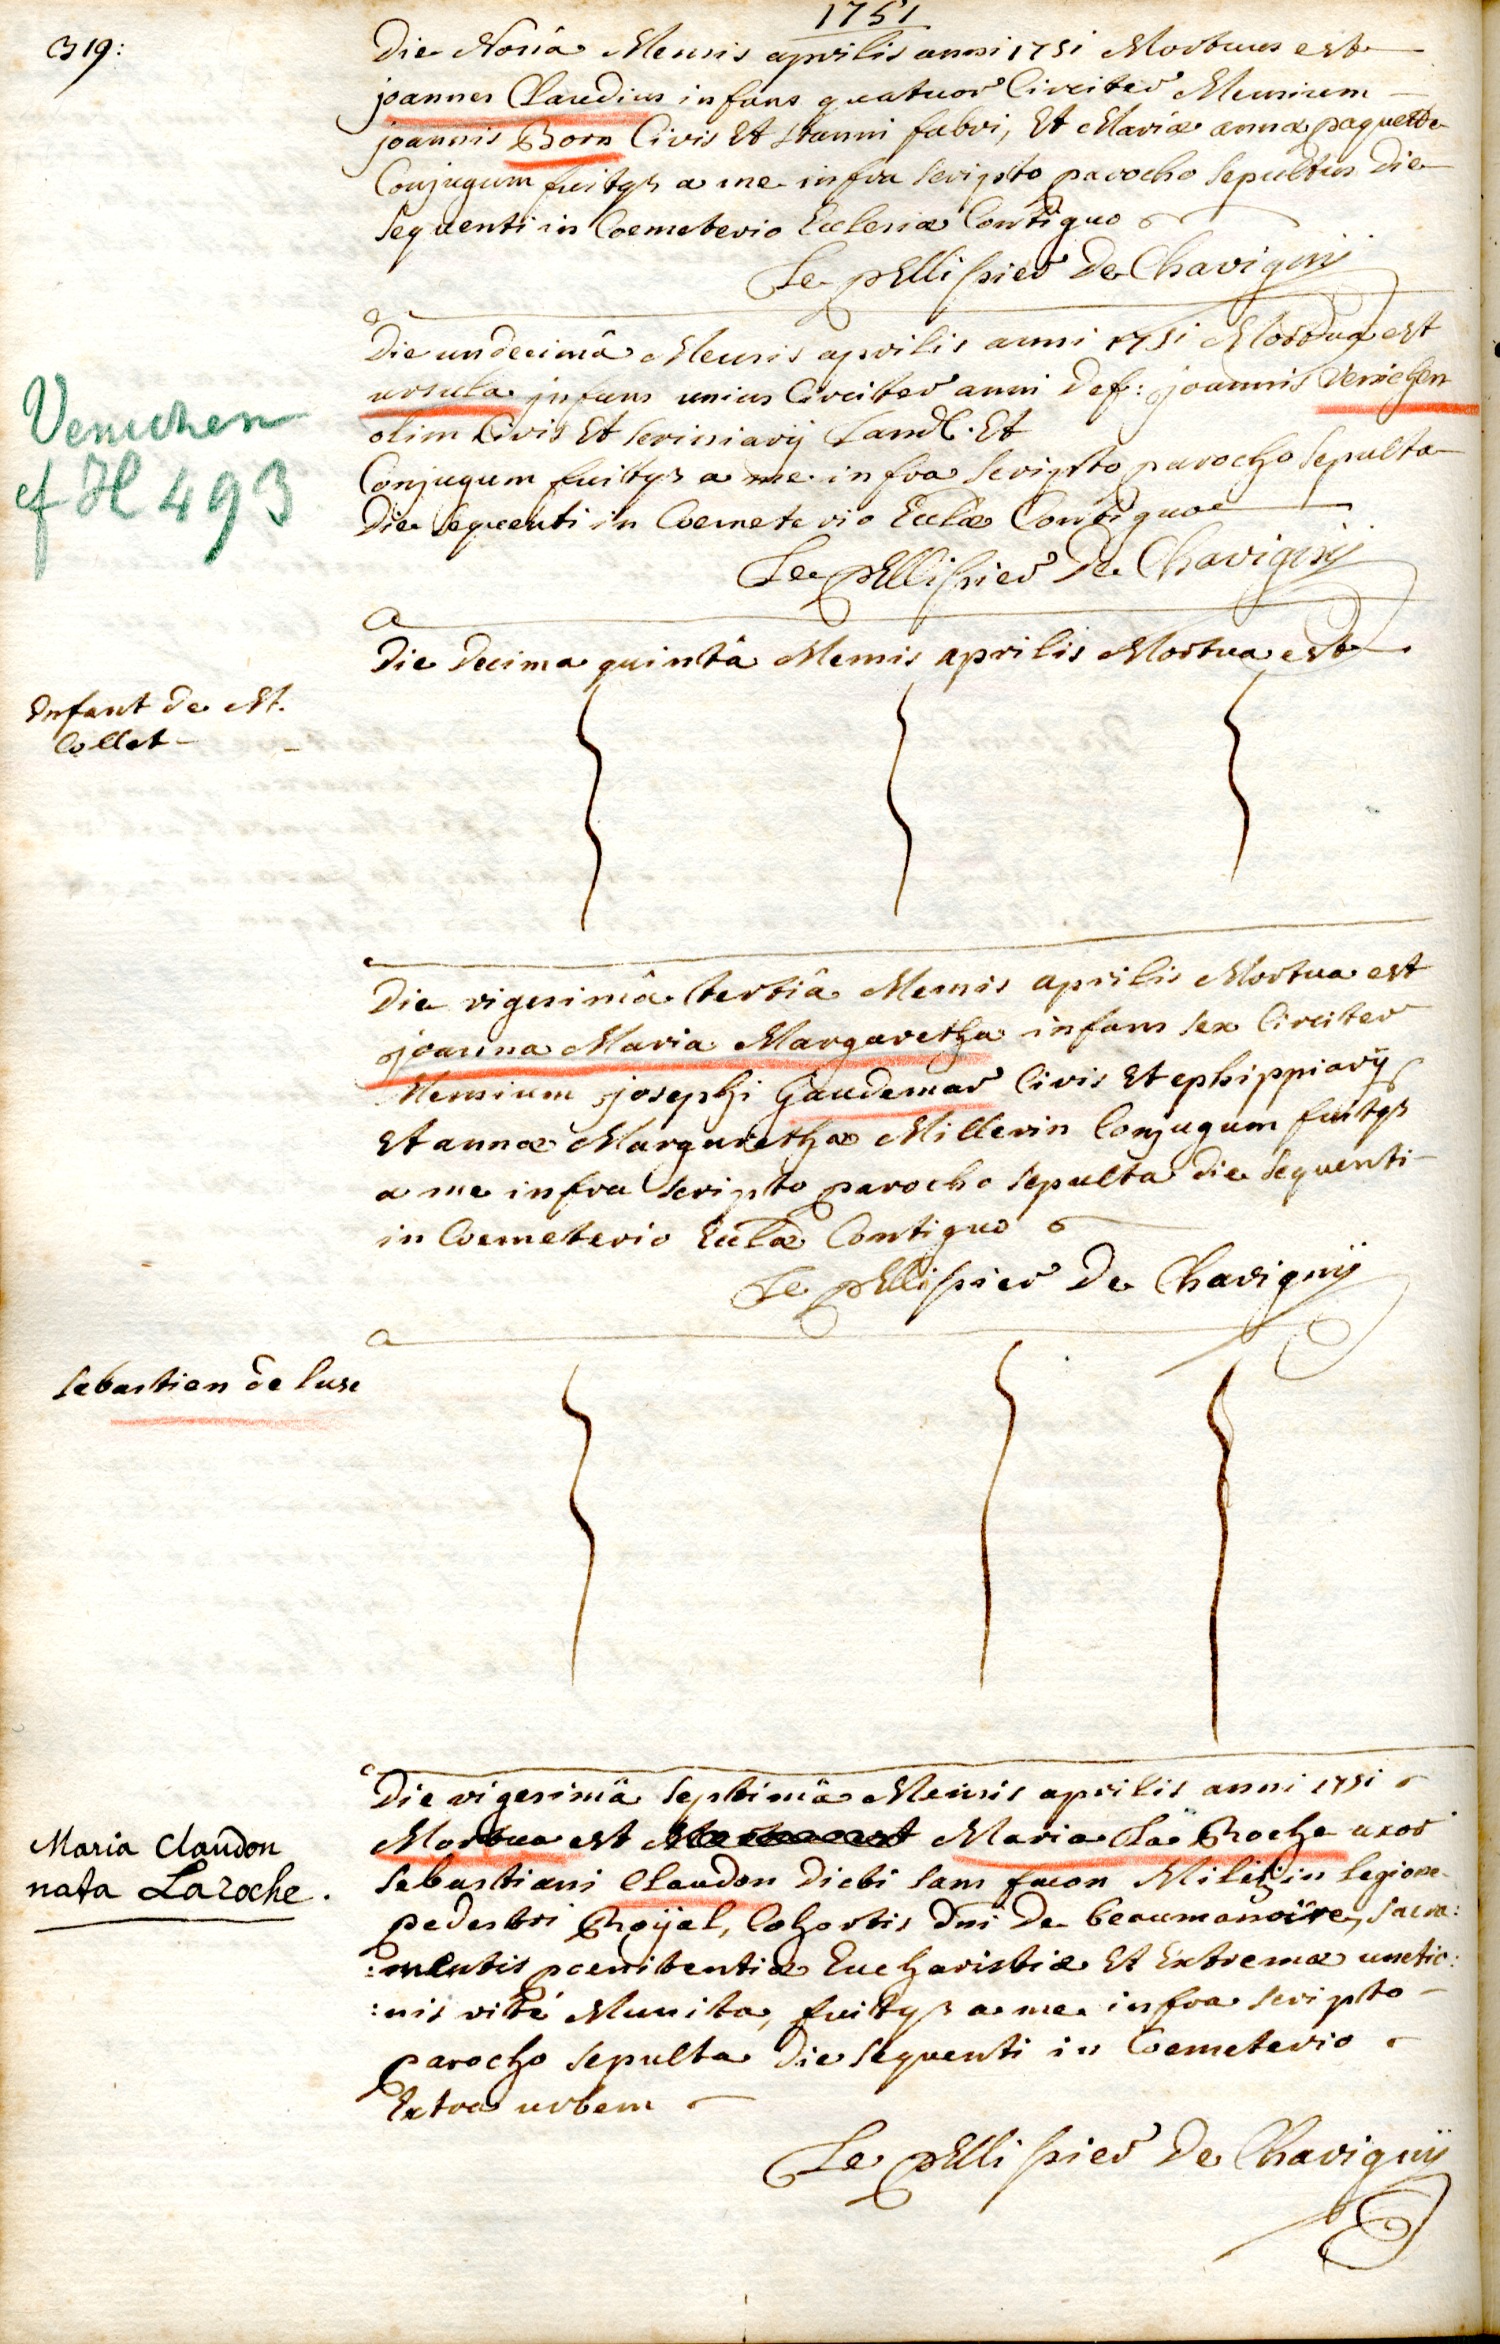 1751
319:
Die Nonâ Mensis aprilis anni 1751 Mortuus est
joannes Claudius infans quatuor Circiter Mensium
joannis Born Civis Et stanni fabri, Et Mariæ annæ paquette
Conjugum fuitqз a me infra scripto parocho sepultus Die
sequenti in Coemeterio Ecclesiæ Contiguo
Le pEllissier De Chavignÿ
Die undecimâ Mensis aprilis anni 1751 Mortua est
ursula infans unius Circiter anni Def: joannis Venichen
Venichen
cf H 493
olim Civis Et scriniarÿ Land. Et
Conjugum fuitqз a me infra scripto parocho sepulta
Die sequenti in Coemeterio Eccl̃æ Contiguo
Le pEllissier De Chavignÿ
Die Decima quintâ Mensis aprilis Mortua est
Enfant De M.
Collet
Die vigesimâ tertiâ Mensis aprilis Mortua est
joanna Maria Margaretha infans sex Circiter
Mensium josephi Gaudemar Civis Et ephippiarÿ
Et annæ Margarethæ Millerin Conjugum fuitqз
a me infra scripto parocho sepulta die sequenti
in Coemeterio Eccl̃æ Contiguo
Le pEllissier De Chavignÿ
Sebastien de Luse
Die vigesimâ septimâ Mensis aprilis anni 1751
Mortua est Maria La Roche uxor
Maria Claudon
nata Laroche.
Sebastiani Claudon Dicti sans facon Militis in legione
pedestri Roÿal, Cohortis Dni De beaumanoire, sacra:
:mentis poenitentiæ Eucharistiæ Et Extremæ unctio:
:nis rité Munita, fuitqз a me infra scripto
parocho sepulta Die sequenti in Coemeterio
Extra urbem
Le pEllissier De Chavignÿ